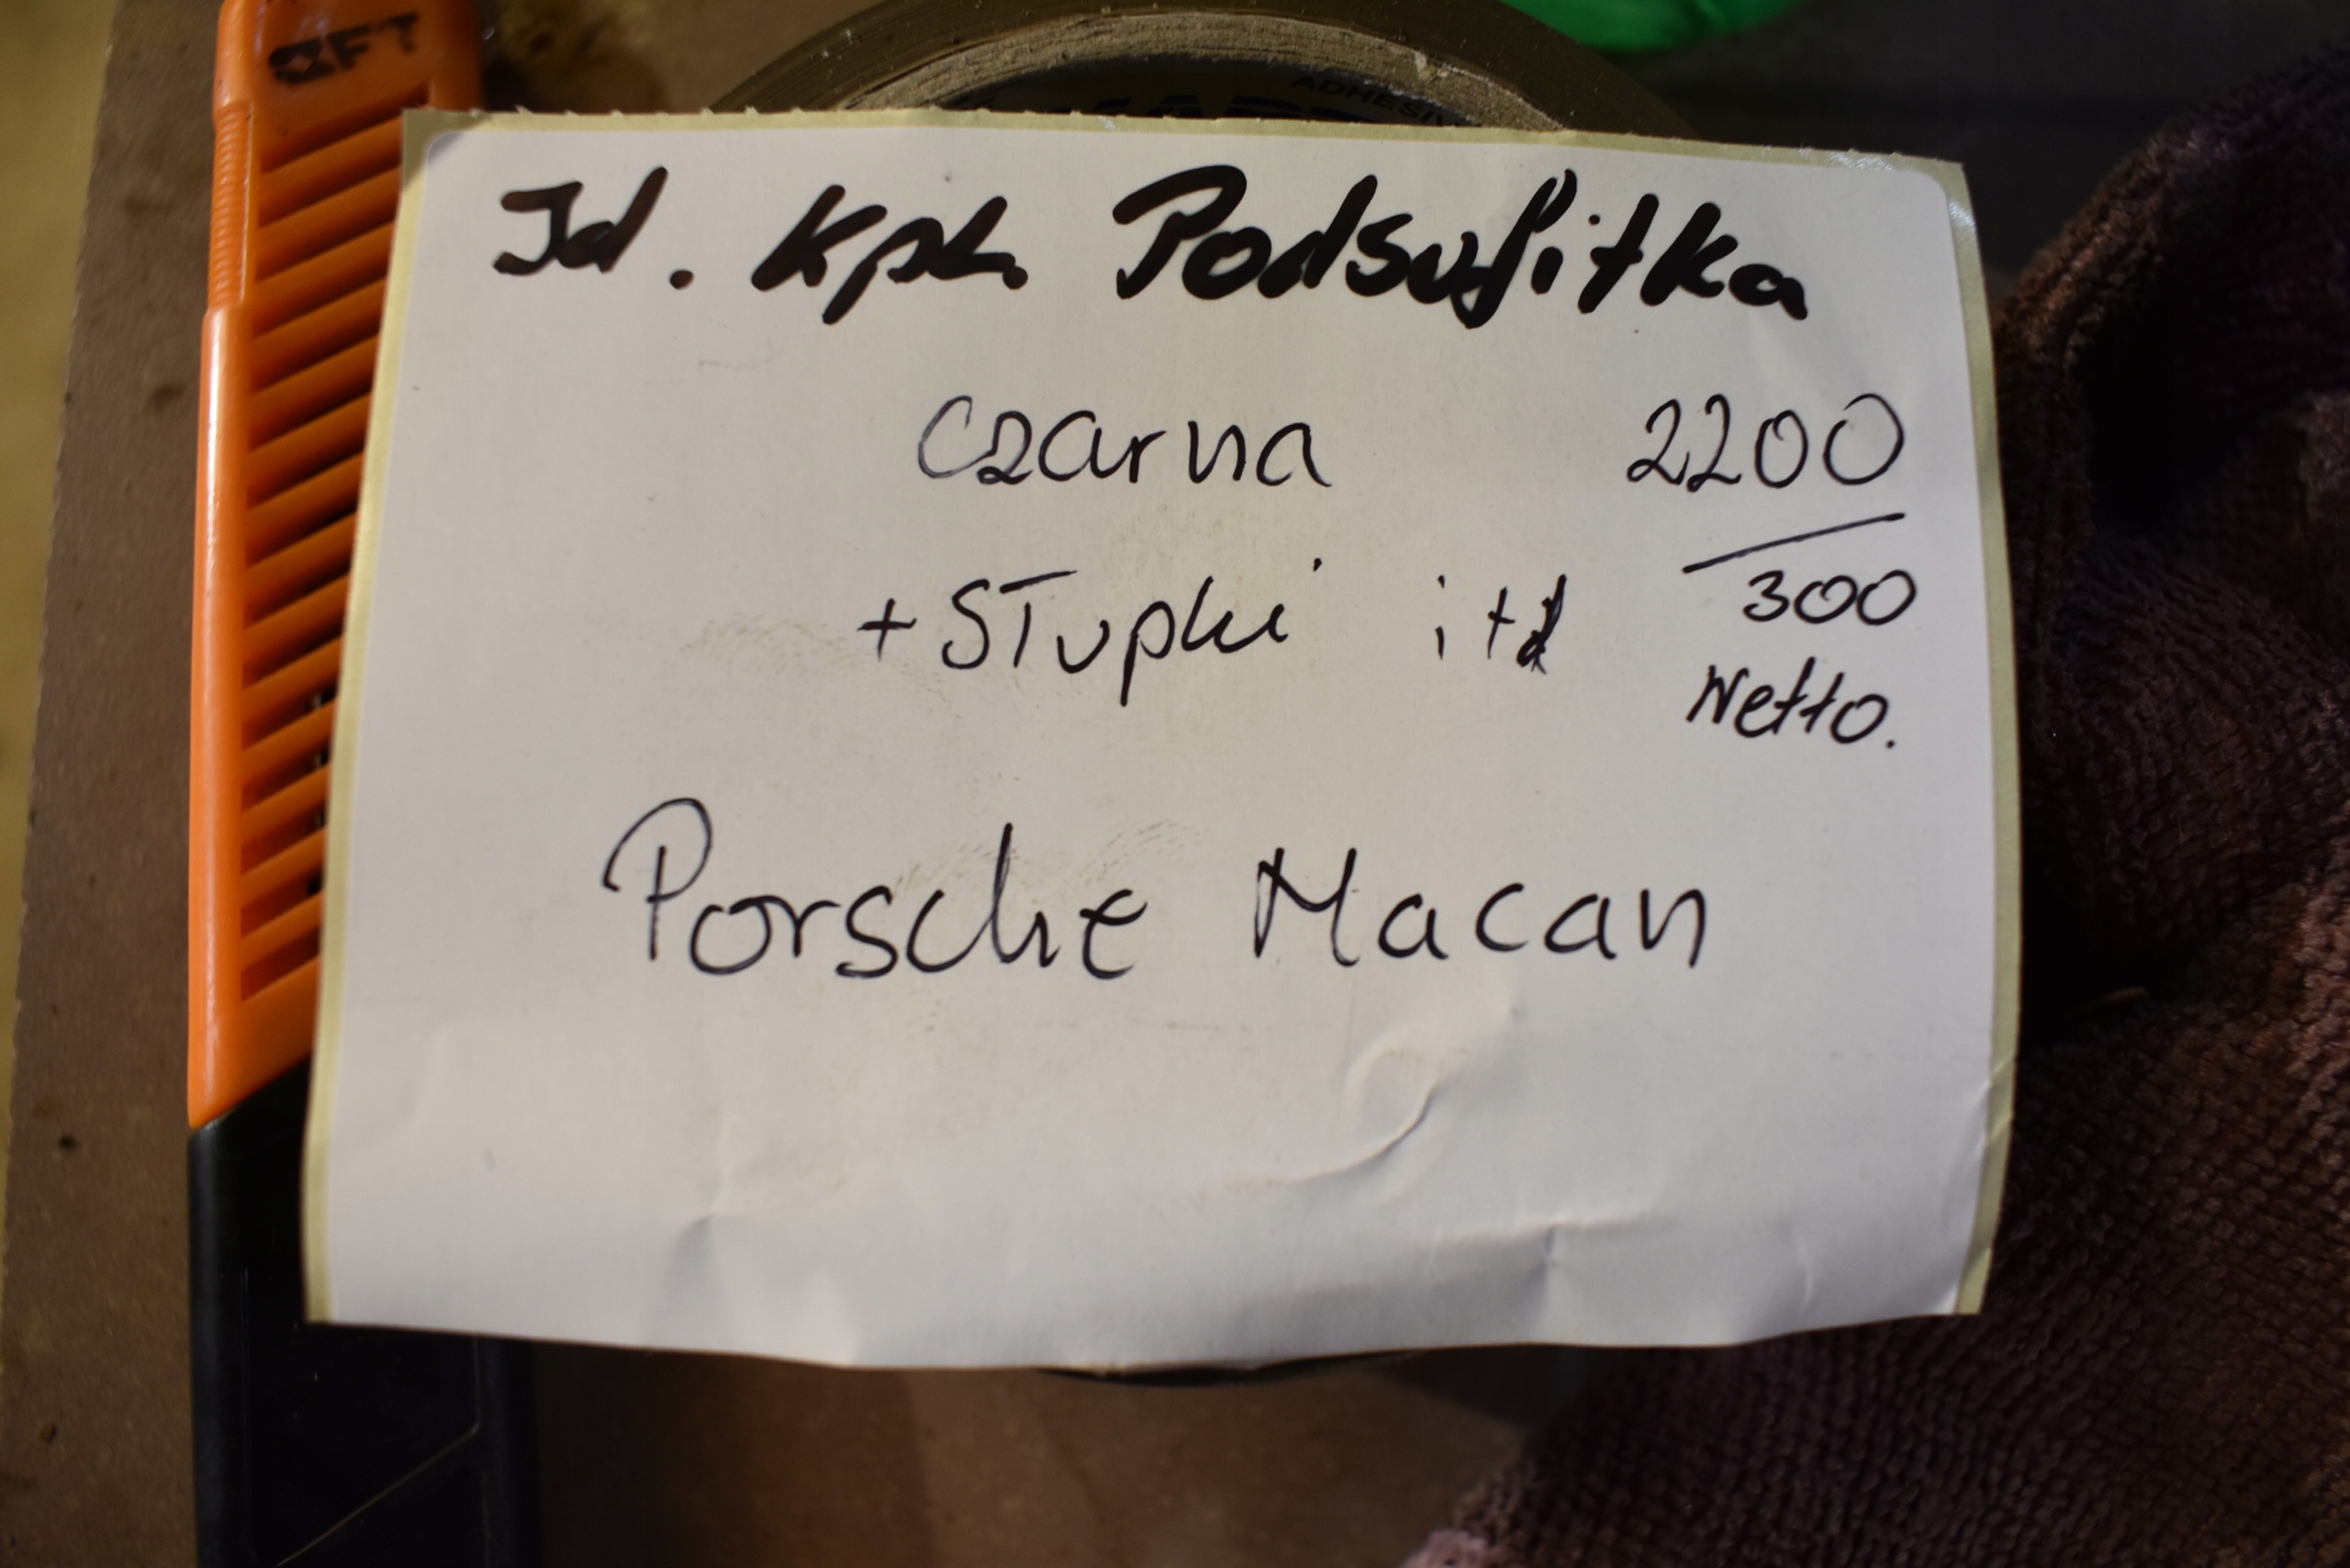 QFT
ADHESIV
Jd. Kpl. Podsufitka
Czarna 2200
+ STupki itd 300
Netto.
Porsche Macan